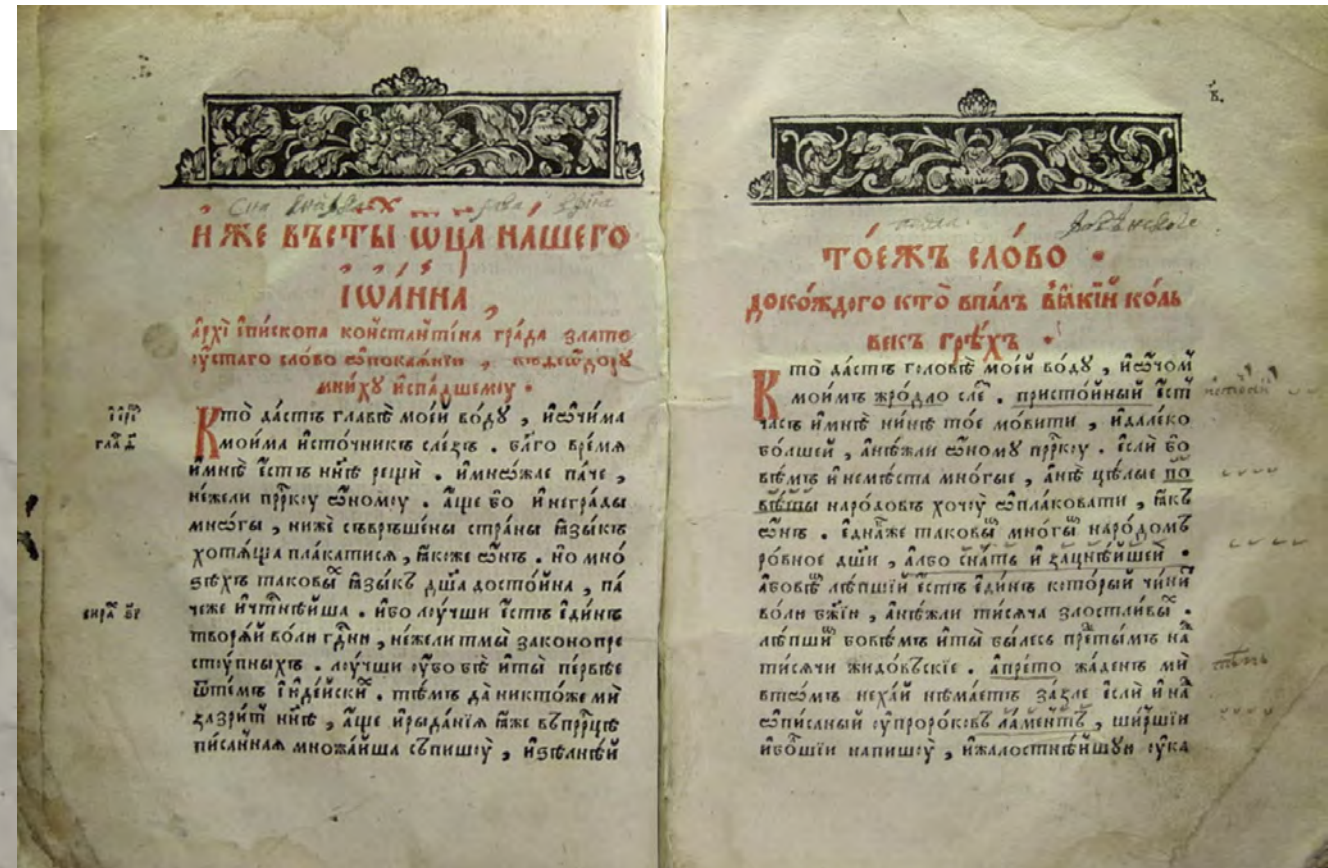 И҆ЖЕ ВЪСТЫ ѠЦА НАШЕГО
ІѠАННА ,
а҆рхї е҆пи́скопа ко́нстанти́на гра́да злато
ѹ҆́стаго сло́во ѡ҆покаѧ́нїи ,
мни́хꙋ и҆спа́дшемоу •
Кто̀ да́стъ главѣ̀ мое́й во́дꙋ , и҆ѡ҆чи́ма
мои́ма и҆сто́чникъ сле́зъ . бл҃го вре́мѧ
и҆мнѣ̀ є҆́стъ нн҃ѣ рещѝ . и҆мно́жае па́че ,
не́жели прⷪ҇ркꙋ ѡ҆́номоу . а҆́ще бо и҆негра́ды
мнѡ́гы , нижѐ съвръше́ны стра́ны ꙗ҆зы́къ
хотѧ́ща пла́катисѧ , ꙗ҆́коже ѡ҆́нъ . но мно́
ѕѣхъ таковы́ⷯ ꙗ҆зы́къ дш҃а̀ досто́йна , па́
чеже и҆чтⷭ҇нѣ́йша . и҆́бо лоу́чши є҆́сть є҆ди́нъ
творѧ́й во́лю гдⷭ҇ню , не́жели тмы̀ законопре
стоу́пныхъ . лоу́чши ѹ҆́бо бѣ̀ и҆ты̀ пе́рвѣе
ѿте́мъ і҆ꙋде́йскиⷯ . тѣ́мъ да̀ никто́же мѝ
зазри́тъ нн҃ѣ , а҆́ще и҆рыда́нїѧ ꙗ҆́же въпрⷪ҇рцѣ
пи́санная множа́йша съпишоу̀ , и҆ѕѣлнѣ́й
і҆ере́ⷨ
гла҃ д҃
сира́ⷯ ѕ҃і
в҃.
ТО́ЕЖЪ СЛО́ВО •
до ко́ждого кто̀ впа́лъ в ꙗ҆́кїй ко́ль
векъ грѣ́хъ •
Кто̀ да́стъ головѣ̀ мое́й во́дꙋ , и҆ѡ҆чо́м
мои́мъ жро́дло сле́ⷥ . присто́йный є҆́стъ
ча́съ и҆мнѣ̀ ни́нѣ то́е мо́вити , и҆дале́ко
бо́лшей , а҆нѣ́жли ѡ҆́номꙋ прⷪ҇ркꙋ . е҆слѝ бо
вѣ́мъ и҆немѣ́ста мно́гые , а҆нѣ̀ цѣ́лые по
вѣ́ты наро́довъ хочоу̀ ѡ҆пла́ковати , ꙗ҆́къ
ѡ҆́нъ . є҆дна́же таковы́ⷨ мно́гыⷨ наро́домъ
ро́вное дш҃и , а҆́лбо сна́ть и҆ зацнѣ́йшей •
а҆бовѣ́ⷨ лѣ́пшїй є҆́стъ є҆ди́нъ кото́рый чи́нит
во́лю бж҃їю , а҆нѣ́жли ти́сѧча злостли́выⷯ .
лѣ́пшиⷨ бовѣ́мъ и҆ты̀ бы́лесь пре́тымъ на́ⷣ
ти́сѧчи жидо́вскїе . а҆пре́то жа́денъ мѝ
втѡ́мъ неха́й нѣма́етъ за́зле е҆слѝ и҆на́ⷣ
ѡ҆пи́саный ѹ҆проро́ковъ ла́ментъ , ши́ршїи
и҆бо́лшїи напишоу̀ , и҆жалостнѣ́йшꙋю ѹ҆ка